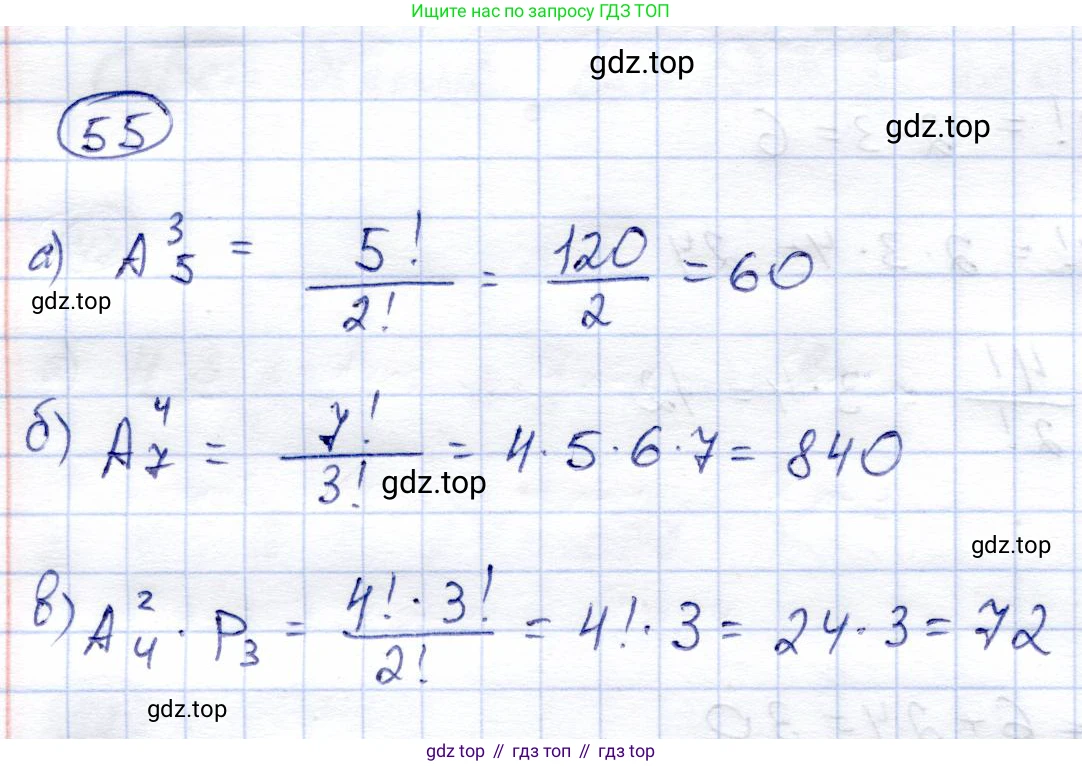 Ищите нас по запросу ГДЗ ТОП
gdz.top
55
gdz.top
а) A³₅ = 5!/2! = 120/2 = 60
gdz.top
б) A⁴₇ = 7!/3! = 4·5·6·7 = 840
gdz.top
gdz.top
в) A²₄ · P₃ = 4!·3!/2! = 4!·3 = 24·3 = 72
gdz.top
gdz top // гдз топ // gdz top